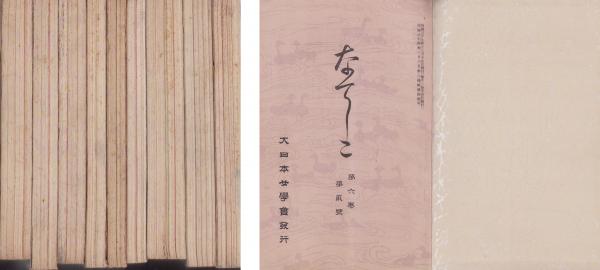 なてしこ
第六卷
第貳號
大日本女學會發行